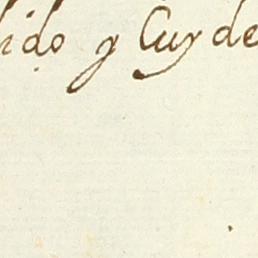 hido y Cuyde